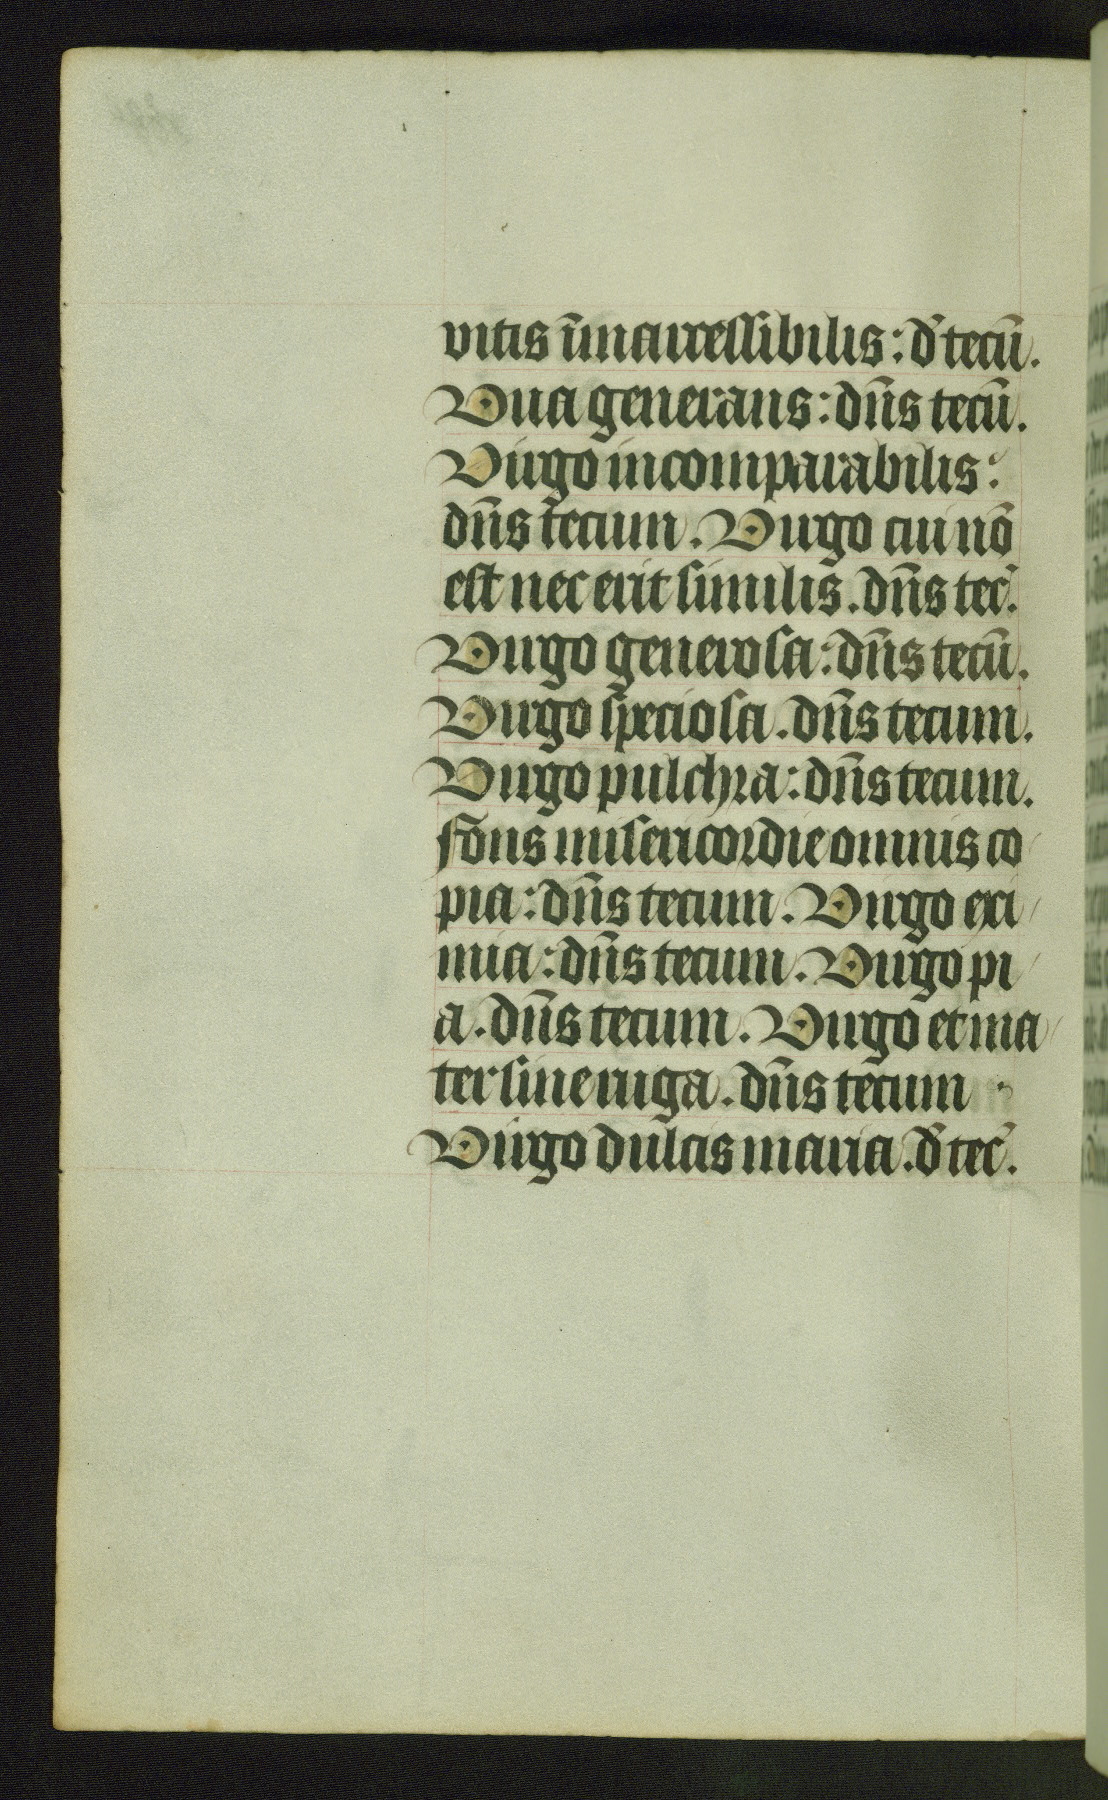 vitis īmarcessibilis: d̄ tecū.
Uva generans: dn̄s tecū.
Virgo incomparabilis:
dn̄s tecum. Virgo cui nō
est nec erit similis. dn̄s tec̄.
Virgo generosa: dn̄s tecū.
Virgo speciosa. dn̄s tecum.
Virgo pulchra: dn̄s tecum.
fons misericordie omnis co
pia: dn̄s tecum. Virgo exi
mia: dn̄s tecum. Virgo pi
a. dn̄s tecum. Virgo et ma
ter sine ruga. dn̄s tecum
Virgo dulcis maria. d̄ tec̄.